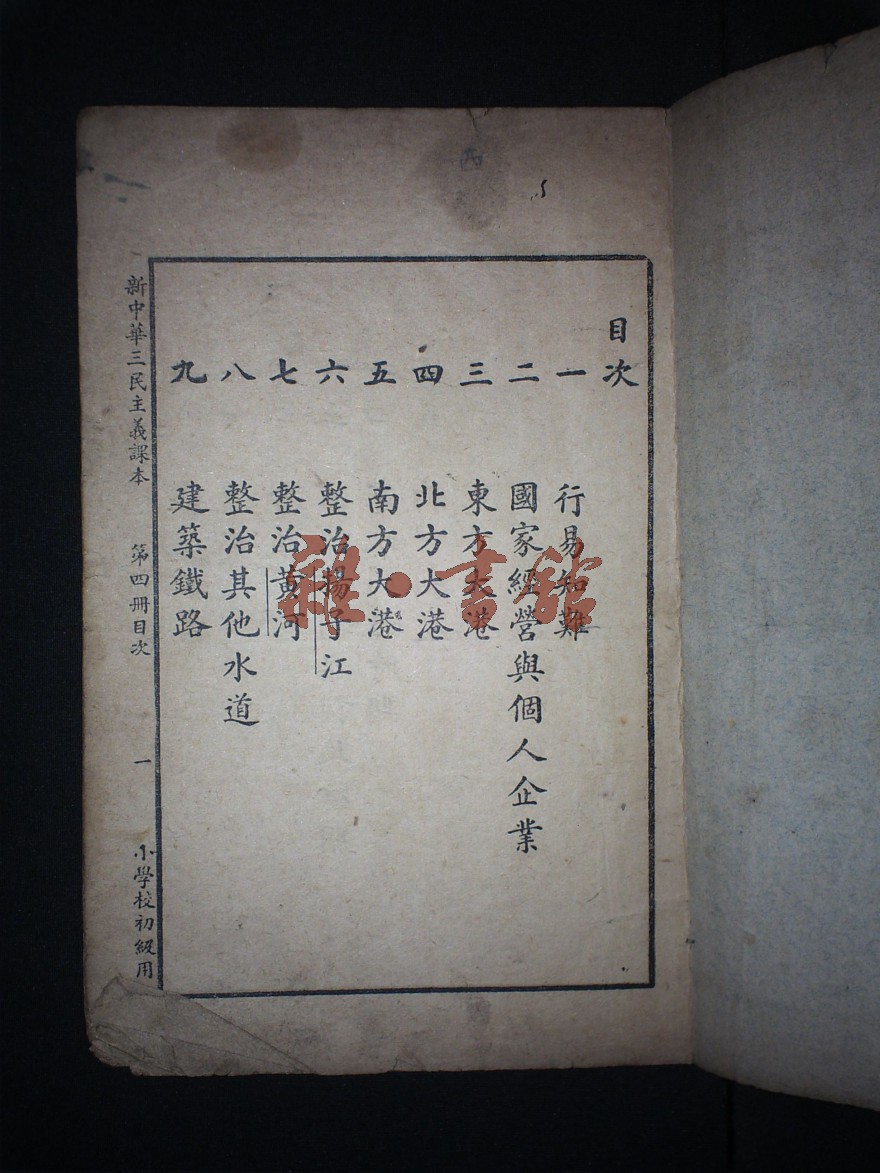 目次
一 行易知難
二 國家經營與個人企業
三 東方大港
四 北方大港
五 南方大港
六 整治揚子江
七 整治黃河
八 整治其他水道
九 建築鐵路
新中華三民主義課本 第四冊目次 一 小學校初級用
雜·書館